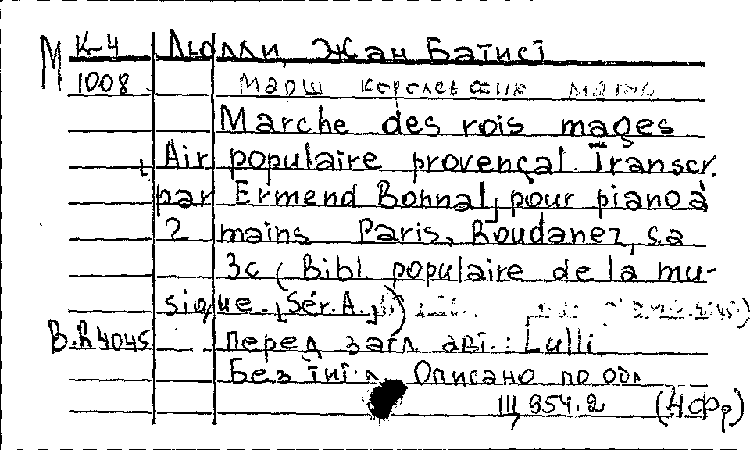 М К-4 Люлли, Жан Батист
1008 Марш королевских магов
Marche des rois mages
Air populaire provençal. Transcr.
par Ermend Bonnal, pour piano à
2 mains Paris, Roudanez, s.a
3c (Bibl. populaire de la mu-
sique. Sér. A.)
B.R4045 Перед загл авт.: Lulli
Без тит. л. Описано по обл
III, 954.2 (Чфр)